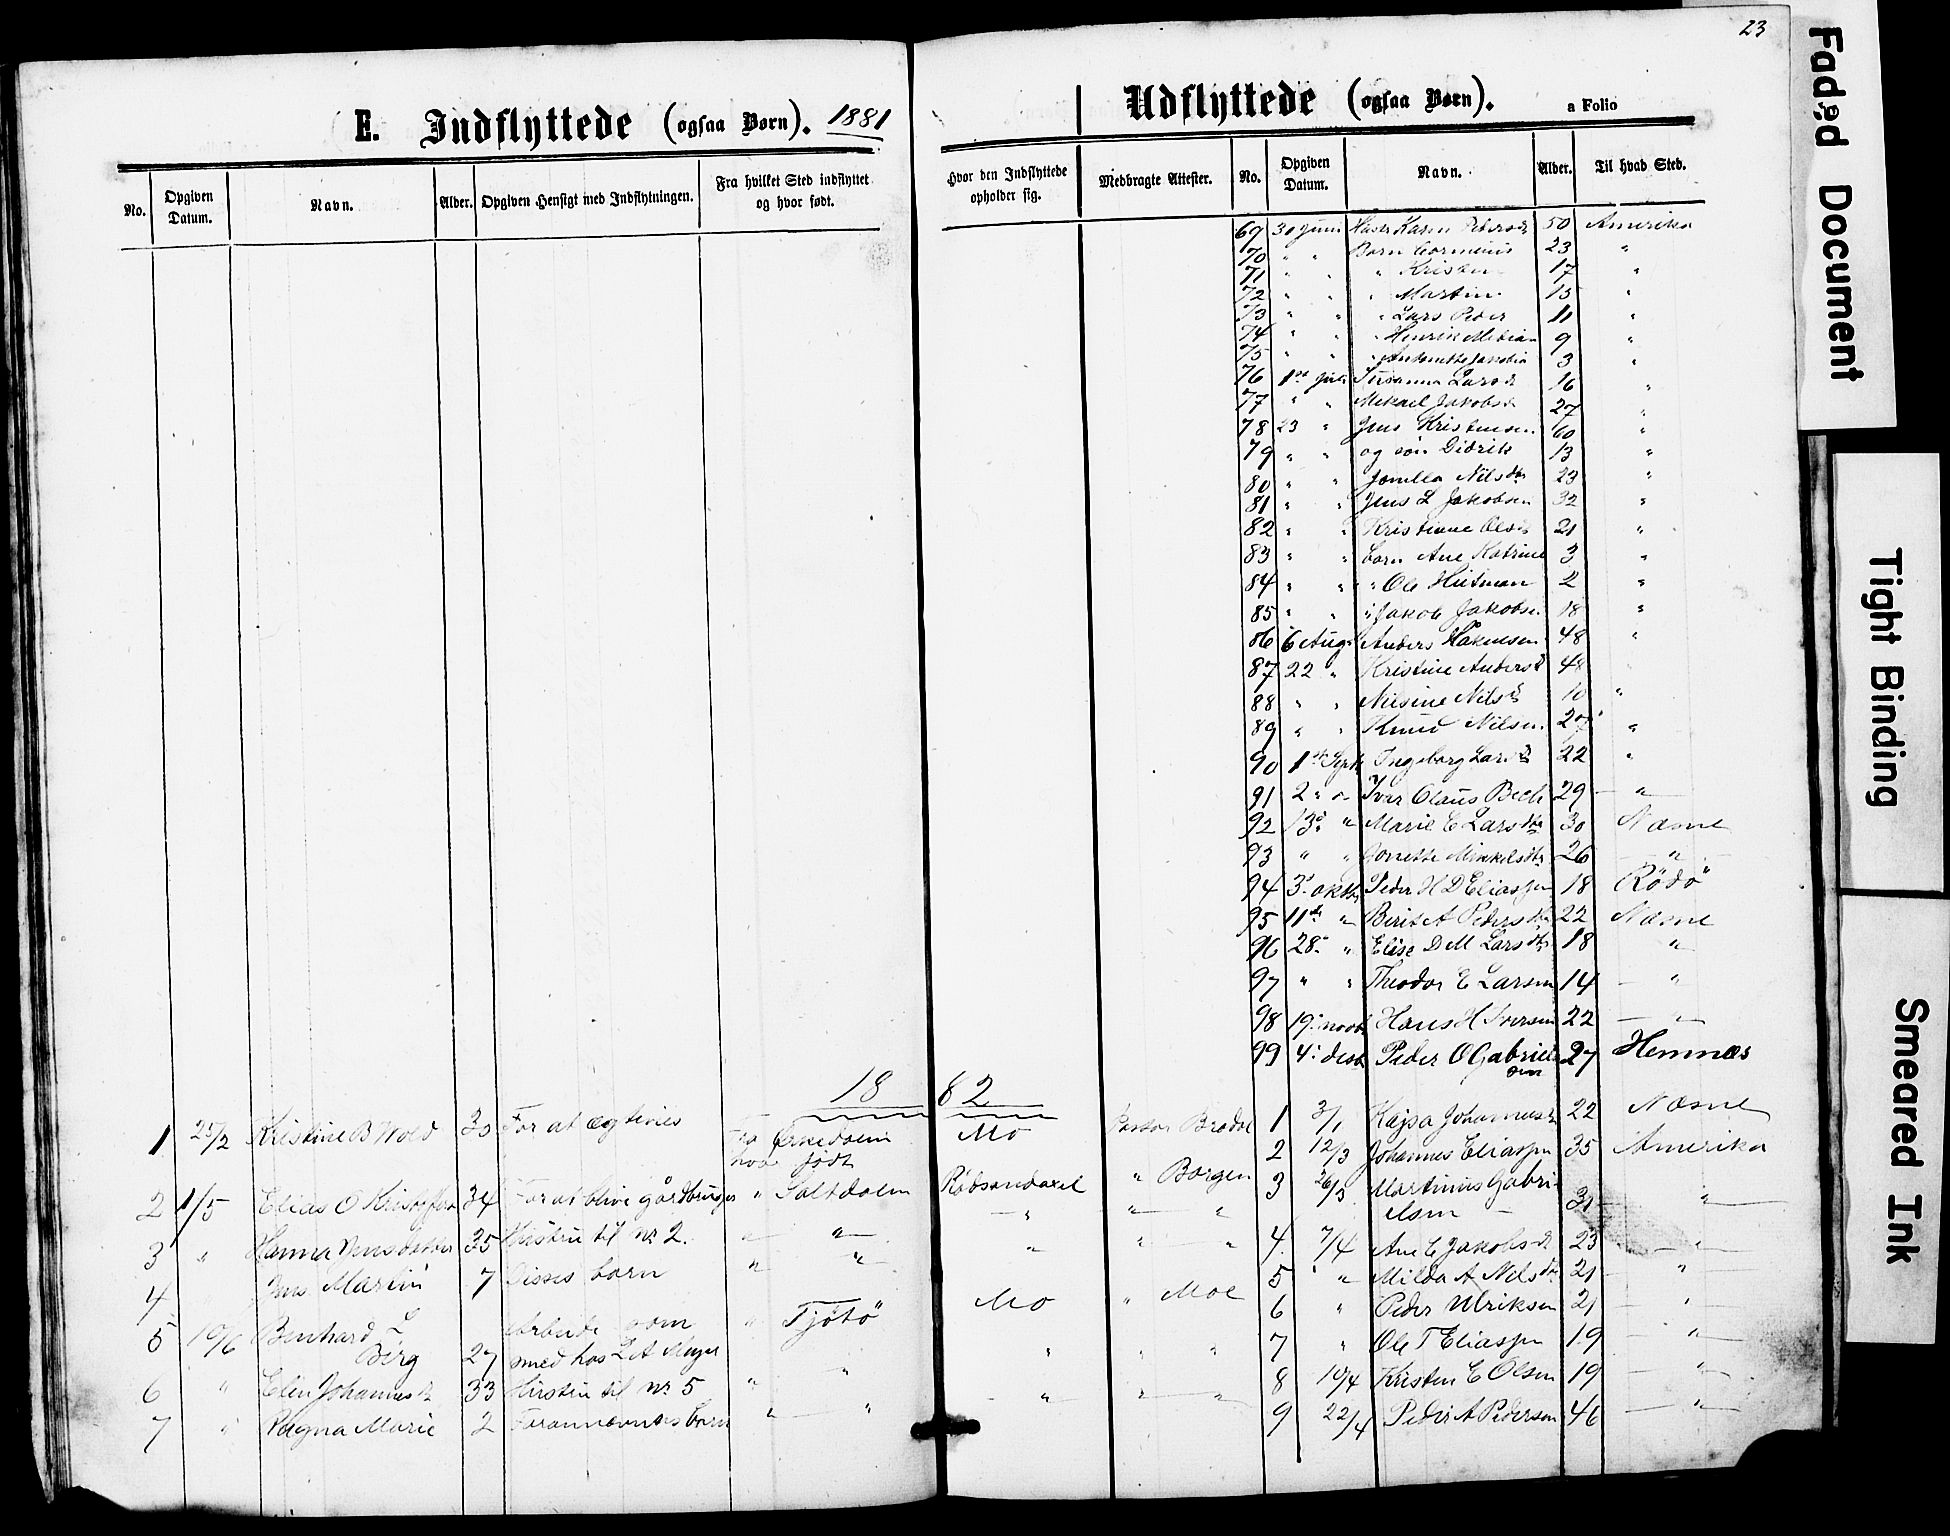 23
E. Indflyttede (ogsaa Børn). 1881
No. Opgiven Datum. Navn. Alder. Opgiven Hensigt med Indflytningen. Fra hvilket Sted indflyttet og hvor født.
Udflyttede (ogsaa Børn). a Folio
Hvor den Indflyttede opholder sig. Medbragte Attester. No. Opgiven Datum. Navn. Alder. Til hvad Sted.
69 30 Juni Karen 50 Amerika
70 " " Børn 23 "
71 " " " Kristen 17 "
72 " " " Martin 15 "
73 " " " Lars Peder 11 "
74 " " " Henrik 9 "
75 " " " 3 "
76 1ste Juli Susanna Larsd 16 "
77 " " Mikael Jakobs 27 "
78 23 " Jens Kristensen 60 "
79 " " og søn Didrik 13 "
80 " " Nilsdtr 23 "
81 " " Jens L Jakobsen 32 "
82 " " Kristine Olsd 21 "
83 " " barn Ane Katrine 3 "
84 " " " Ole Hitman 2 "
85 " " " Jakob Jakobsen 18 "
86 6 Aug Anders Hakensen 48 "
87 22 " Kristine Andersd 48 "
88 " " Nilsine Nilsd 10 "
89 " " Knud Nilsen 27 "
90 1ste Sept Ingeborg Larsd 22 "
91 2 " " Ivar Olaus Bech 29 "
92 13d " Marie E Larsdtr 30 Næsne
93 " " Jonette Mikkelsdtr 26 "
94 3d oktbr Peder H D Eliassen 18 Rödö
95 11te " Berit A Pedersdtr 22 Næsne
96 28 " Elise D M Larsdtr 18 "
97 " " Theodor E Larsen 14 "
98 19 novbr Hans H Iversen 22 "
99 4 desbr Peder O Gabrielsen 27 Hemnæs
18 82
1 25/2 Kristine B Wold 30 For at ægtevies Fra Örkedalen hvor født Mo Pastor Brodal
2 1/5 Elias O Kristoffer 34 For at blive gårdbruger " Saltdalen Røbsandaxel " Borgen
3 " Hanna Jensdatter 35 Hustru til No 2. " " " " "
4 Jens Martin 7 Disses barn " " " " "
5 10/6 Benhard L Berg 27 Arbeide som smed hos L A Meyer " Tjötö Mo " Moe
6 " Elen Johannesd 33 Hustru til No 5 " " " " "
7 " Ragna Marie 2 Forannævntes barn " " " " "
1 3/1 Kajsa Johannesd 22 Næsne
2 12/3 Johannes Eliassen 35 Amerika
3 26/3 Martinus Gabrielsen 31 "
4 7/4 Ane E Jakobsd 23 "
5 " Milda A Nilsdtr 21 "
6 " Peder Ulriksen 21 "
7 " Ole T Eliassen 19 "
8 10/4 Kristen E Olsen 19 "
9 22/4 Peder A Pedersen 46 "
Faded Document
Tight Binding
Smeared Ink